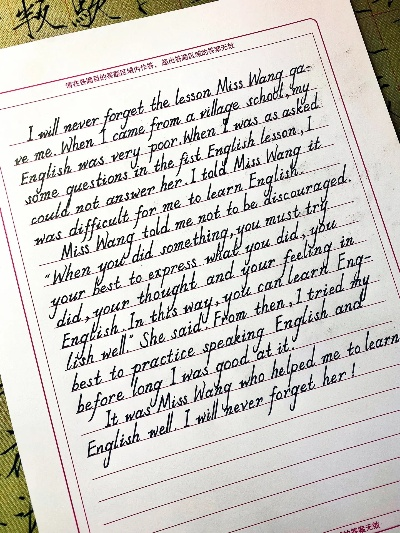 请在各题目的答题区域内作答，超出答题区域的答案无效
I will never forget the lesson Miss Wang ga-
ve me. When I came from a village school, my
English was very poor. When I was as asked
some questions in the fist English lesson, I
could not answer her. I told Miss Wang it
was difficult for me to learn English.
Miss Wang told me not to be discouraged.
"When you did something, you must try
your best to express what you did, you
did, your thought and your feeling in
English. In this way, you can learn Eng-
lish well." She said. From then, I tried my
best to practice speaking English and
before long I was good at it.
It was Miss Wang who helped me to learn
English well. I will never forget her!
的答案无效